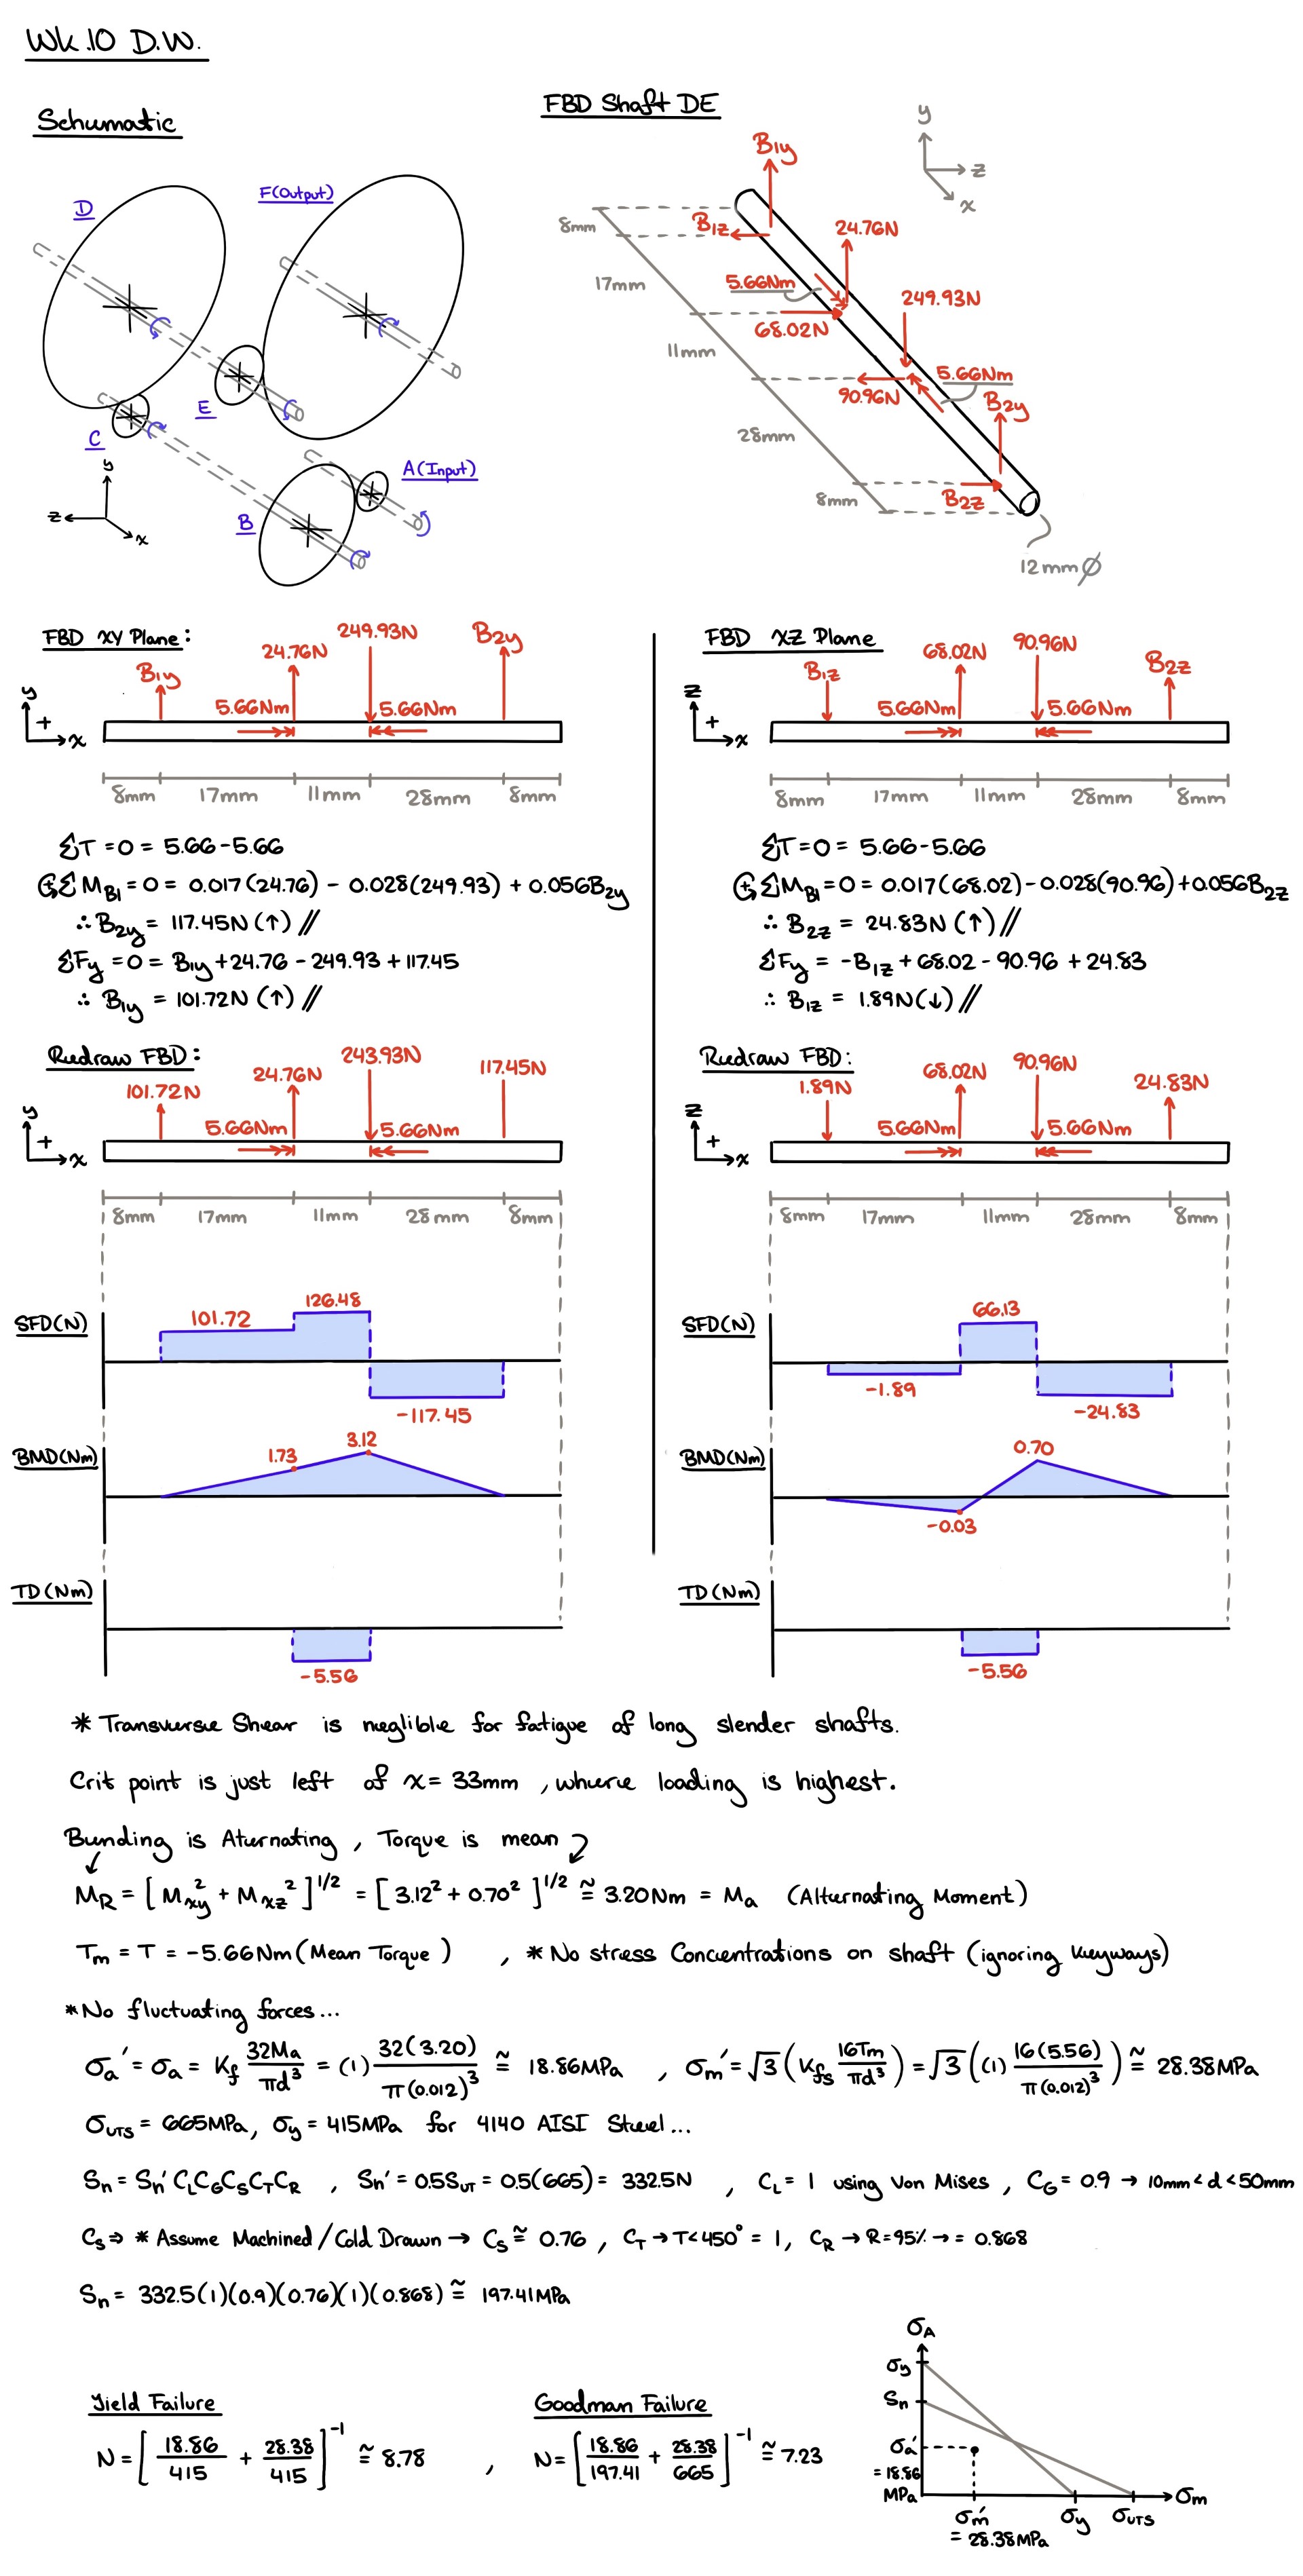 Wk.10 D.W.
Schematic
D
F(Output)
E
C
A(Input)
B
y
z
x
FBD Shaft DE
y
z
x
B1y
8mm
B1z
24.76N
17mm
5.66Nm
249.93N
68.02N
11mm
5.66Nm
90.96N
B2y
28mm
B2z
8mm
12mm Ø
FBD XY Plane:
B1y
24.76N
249.93N
B2y
5.66Nm
5.66Nm
y
+
x
8mm 17mm 11mm 28mm 8mm
ΣT = 0 = 5.66 - 5.66
↺+ ΣM_B1 = 0 = 0.017(24.76) - 0.028(249.93) + 0.056B2y
∴ B2y = 117.45N (↑) //
ΣFy = 0 = B1y + 24.76 - 249.93 + 117.45
∴ B1y = 101.72N (↑) //
Redraw FBD:
101.72N
24.76N
243.93N
117.45N
5.66Nm
5.66Nm
y
+
x
8mm 17mm 11mm 28mm 8mm
SFD(N)
101.72
126.48
-117.45
BMD(Nm)
1.73
3.12
TD(Nm)
-5.56
FBD XZ Plane
B1z
68.02N
90.96N
B2z
5.66Nm
5.66Nm
z
+
x
8mm 17mm 11mm 28mm 8mm
ΣT = 0 = 5.66 - 5.66
↺+ ΣM_B1 = 0 = 0.017(68.02) - 0.028(90.96) + 0.056B2z
∴ B2z = 24.83N (↑) //
ΣFy = -B1z + 68.02 - 90.96 + 24.83
∴ B1z = 1.89N (↓) //
Redraw FBD:
1.89N
68.02N
90.96N
24.83N
5.66Nm
5.66Nm
z
+
x
8mm 17mm 11mm 28mm 8mm
SFD(N)
-1.89
66.13
-24.83
BMD(Nm)
-0.03
0.70
TD(Nm)
-5.56
* Transverse Shear is neglible for fatigue of long slender shafts.
Crit point is just left of x = 33mm , where loading is highest.
Bending is Aternating , Torque is mean
M_R = [M_xy² + M_xz²]^1/2 = [3.12² + 0.70²]^1/2 ≅ 3.20Nm = Ma (Alternating Moment)
Tm = T = -5.66Nm (Mean Torque) , * No stress Concentrations on shaft (ignoring keyways)
* No fluctuating forces...
σa' = σa = Kf 32Ma/πd³ = (1) 32(3.20)/π(0.012)³ ≅ 18.86MPa , σm' = √3 (Kfs 16Tm/πd³) = √3 ((1) 16(5.56)/π(0.012)³) ≅ 28.38MPa
σUTS = 665MPa, σy = 415MPa for 4140 AISI Steel...
Sn = Sn' CL CG CS CT CR , Sn' = 0.5SUT = 0.5(665) = 332.5N , CL = 1 using Von Mises , CG = 0.9 → 10mm < d < 50mm
Cs ⇒ * Assume Machined / Cold Drawn → Cs ≅ 0.76 , CT → T < 450° = 1, CR → R = 95% → = 0.868
Sn = 332.5(1)(0.9)(0.76)(1)(0.868) ≅ 197.41MPa
Yield Failure
N = [18.86/415 + 28.38/415]^-1 ≅ 8.78 ,
Goodman Failure
N = [18.86/197.41 + 28.38/665]^-1 ≅ 7.23
σA
σy
Sn
σa'
= 18.86
MPa
σm
σm'
= 28.38MPa
σy
σUTS